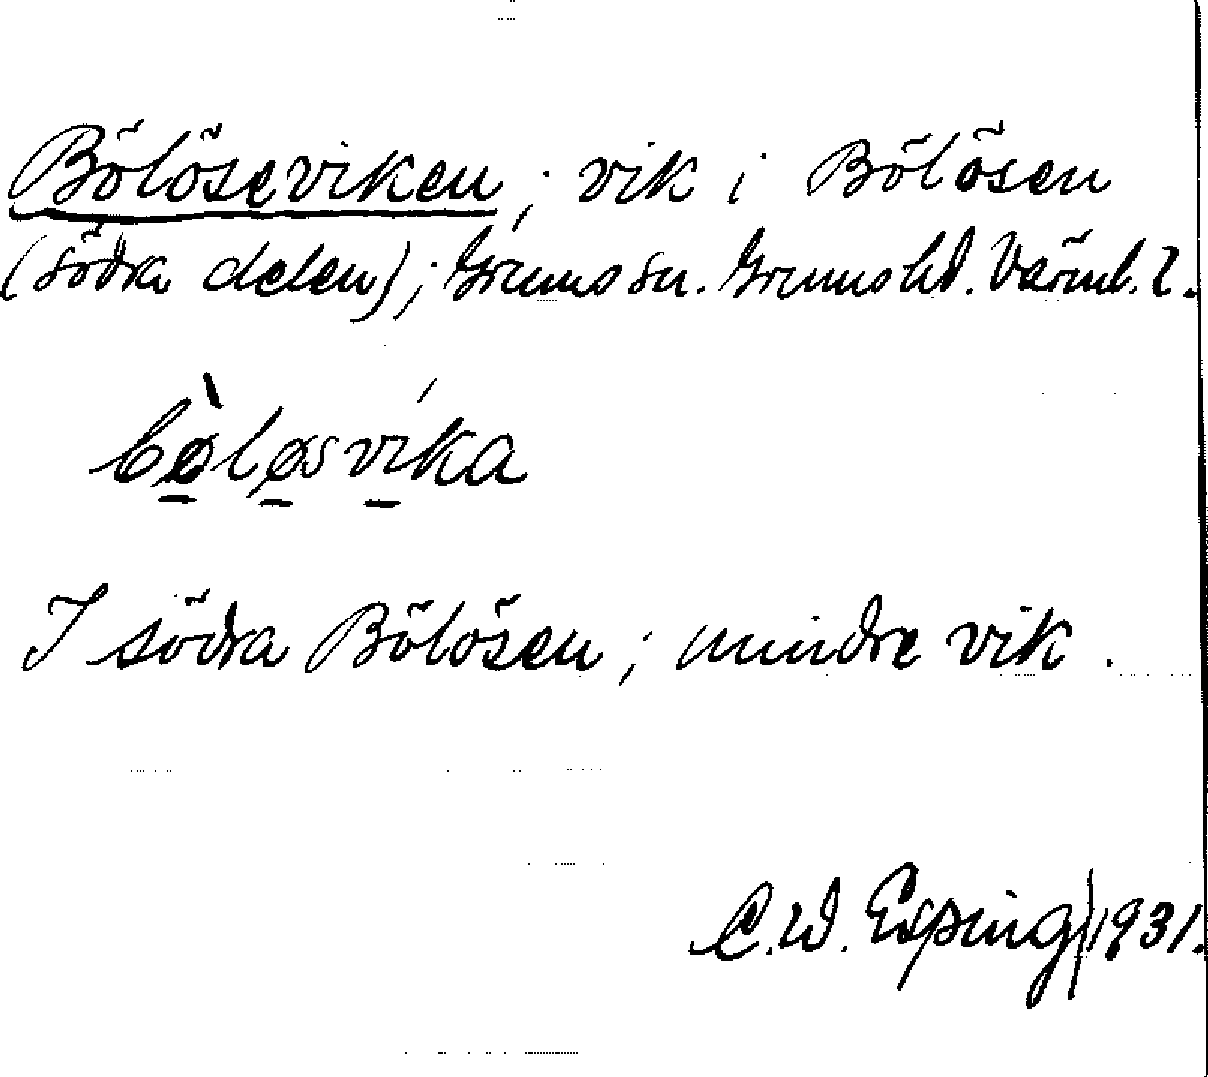 Bölöseviken; vik i Bölösen
(södra delen); Grums sn. Grums hd. Värml. l.
bø̀løsvíka
I södra Bölösen; mindre vik.
C.W. Esping/1931.